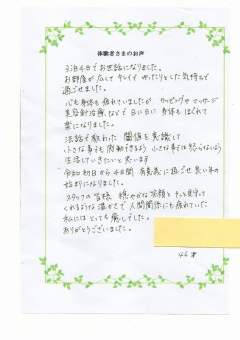 体験者さまのお声
3泊4日でお世話になりました。
お部屋が広くて キレイで ゆったりとした気持ちで
過ごせました。
心も身体も疲れていましたが カッピングや マッサージ
美容針治療などで 日に日に 身体も ほぐれて
楽になりました。
法話で教わった 関係を意識して
小さな事でも感動できるよう 小さな事では怒らないよう
生活していきたいと思います
令和初日から4日間 有意義に過ごせ良い年の
始まりになりました。
スタッフの皆様 穏やかな笑顔と そっと見守って
くれるような温かさで 人間関係にも疲れていた
私には とても 癒しでした。
ありがとうございました。
46才